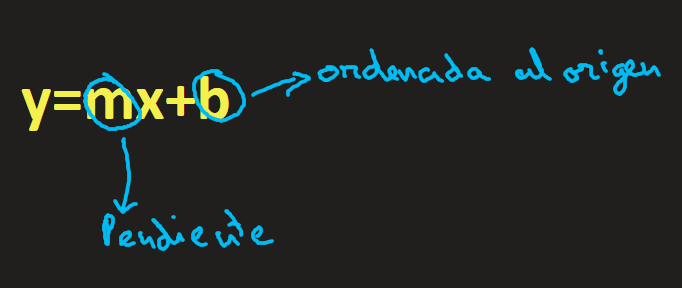 y=mx+b
ordenada al origen
Pendiente